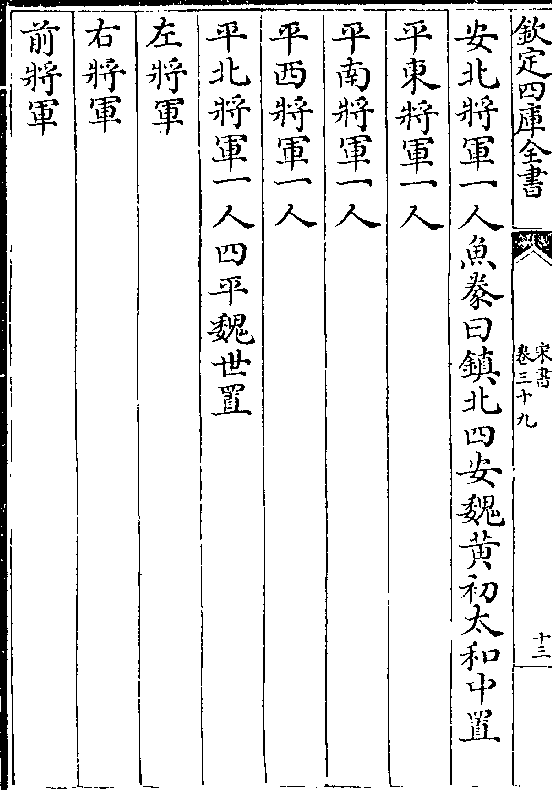 欽定四庫全書
宋書
卷三十九
十三
安北將軍一人魚豢曰鎮北四安魏黄初太和中置
平東將軍一人
平南將軍一人
平西將軍一人
平北將軍一人四平魏世置
左將軍
右將軍
前將軍